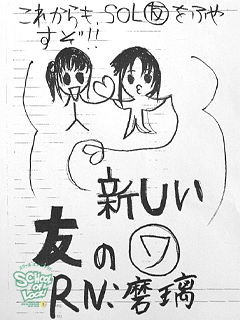 これからも、SOL友をふや
すぞ!!
新しい
友の ワ
RN:磨璃
SCHOOL
OF LOCK!